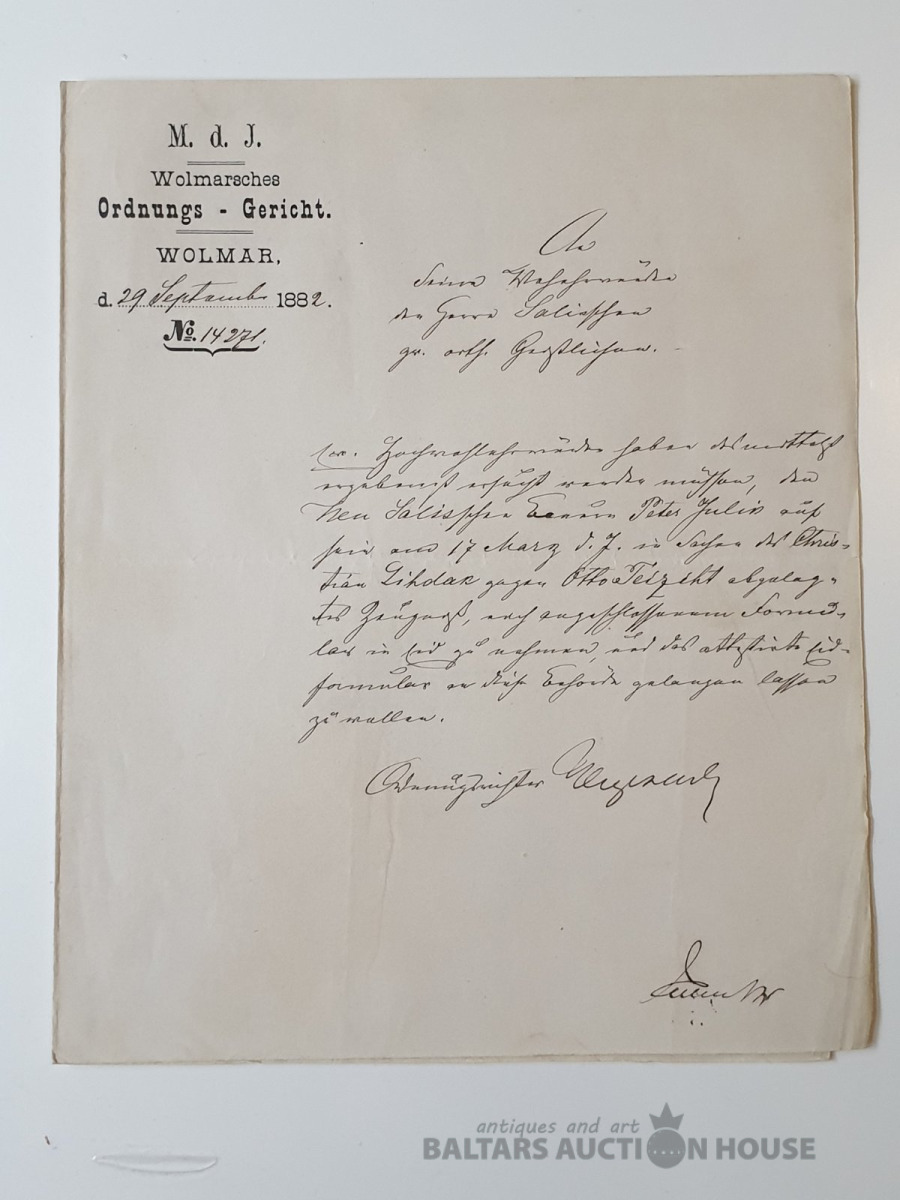 M. d. J.
Wolmarsches
Ordnungs - Gericht.
WOLMAR,
d. 29 September 1882.
No. 14271.
An
Seine Wohlehrwürden
den Herrn Salisschen
gr. orth. Geistlichen.
Ew. Hochwohlehrwürden haben desmittelst
ergebenst ersucht werden müssen, den
Neu Salisschen Bauern Peter Julik auf
sein am 17 März d. J. in Sachen des Chris-
tian Lihdak gegen Otto abgeleg-
tes Zeugniß, nach angeschlossenem Formu-
lar in Eid zu nehmen, und das attestirte Eid-
formular an diese Behörde gelangen lassen
zu wollen.
Ordnungsrichter
antiques and art
BALTARS AUCTION HOUSE